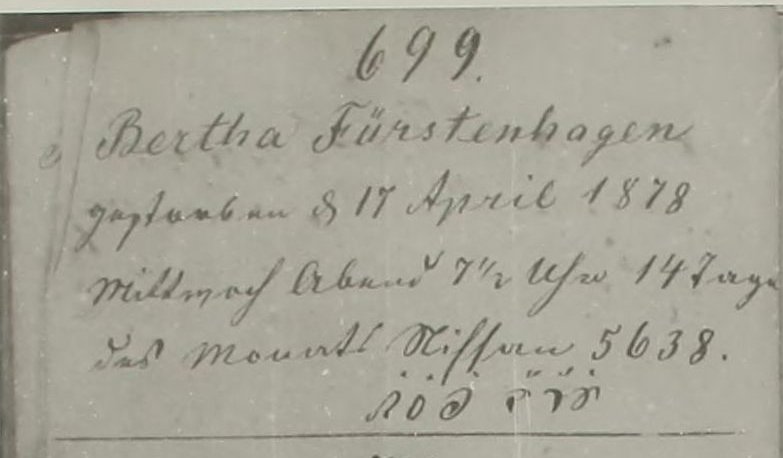 699.
Bertha Fürstenhagen
gestorben d 17 April 1878
Mittwoch Abend 7½ Uhr 14 Tage
des Monats Nissan 5638.